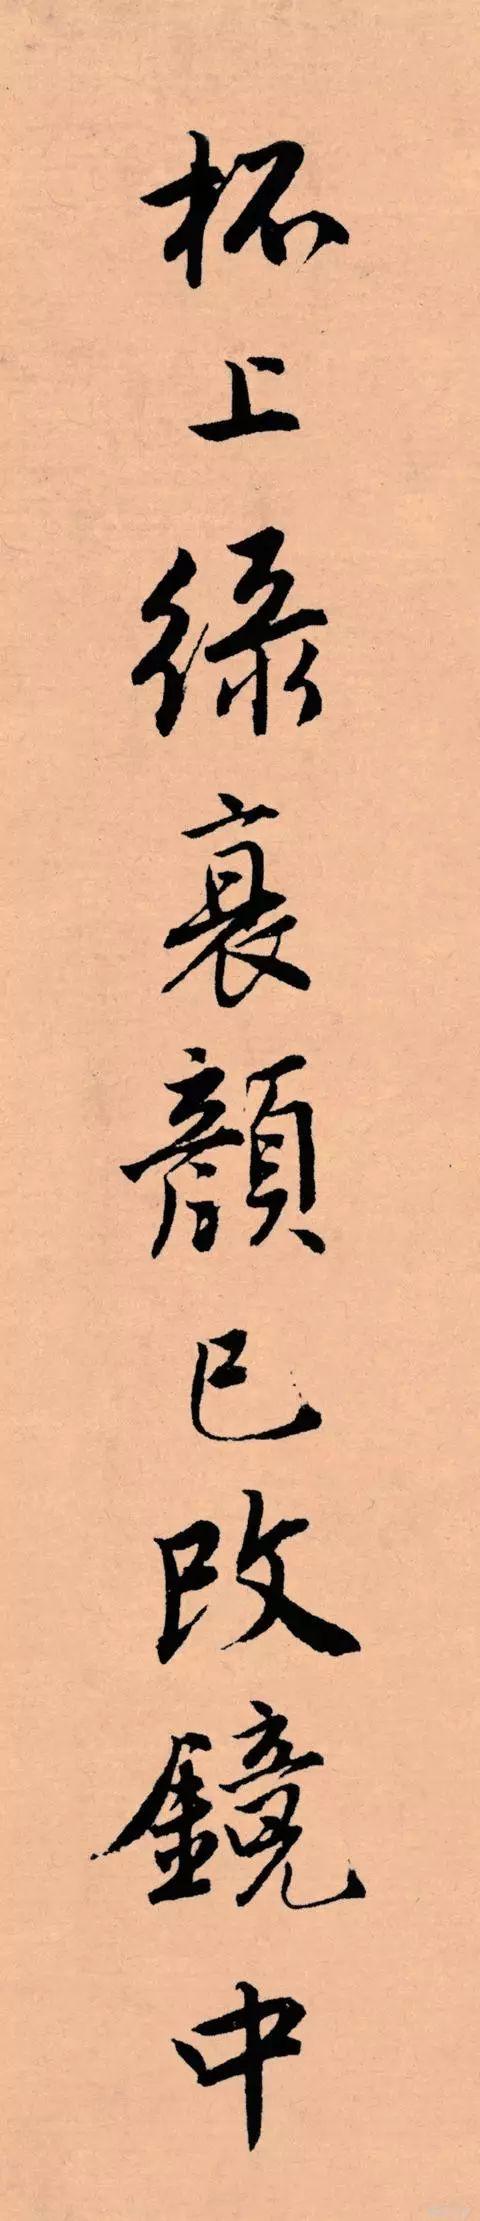 杯上緑衰顔已改鏡中